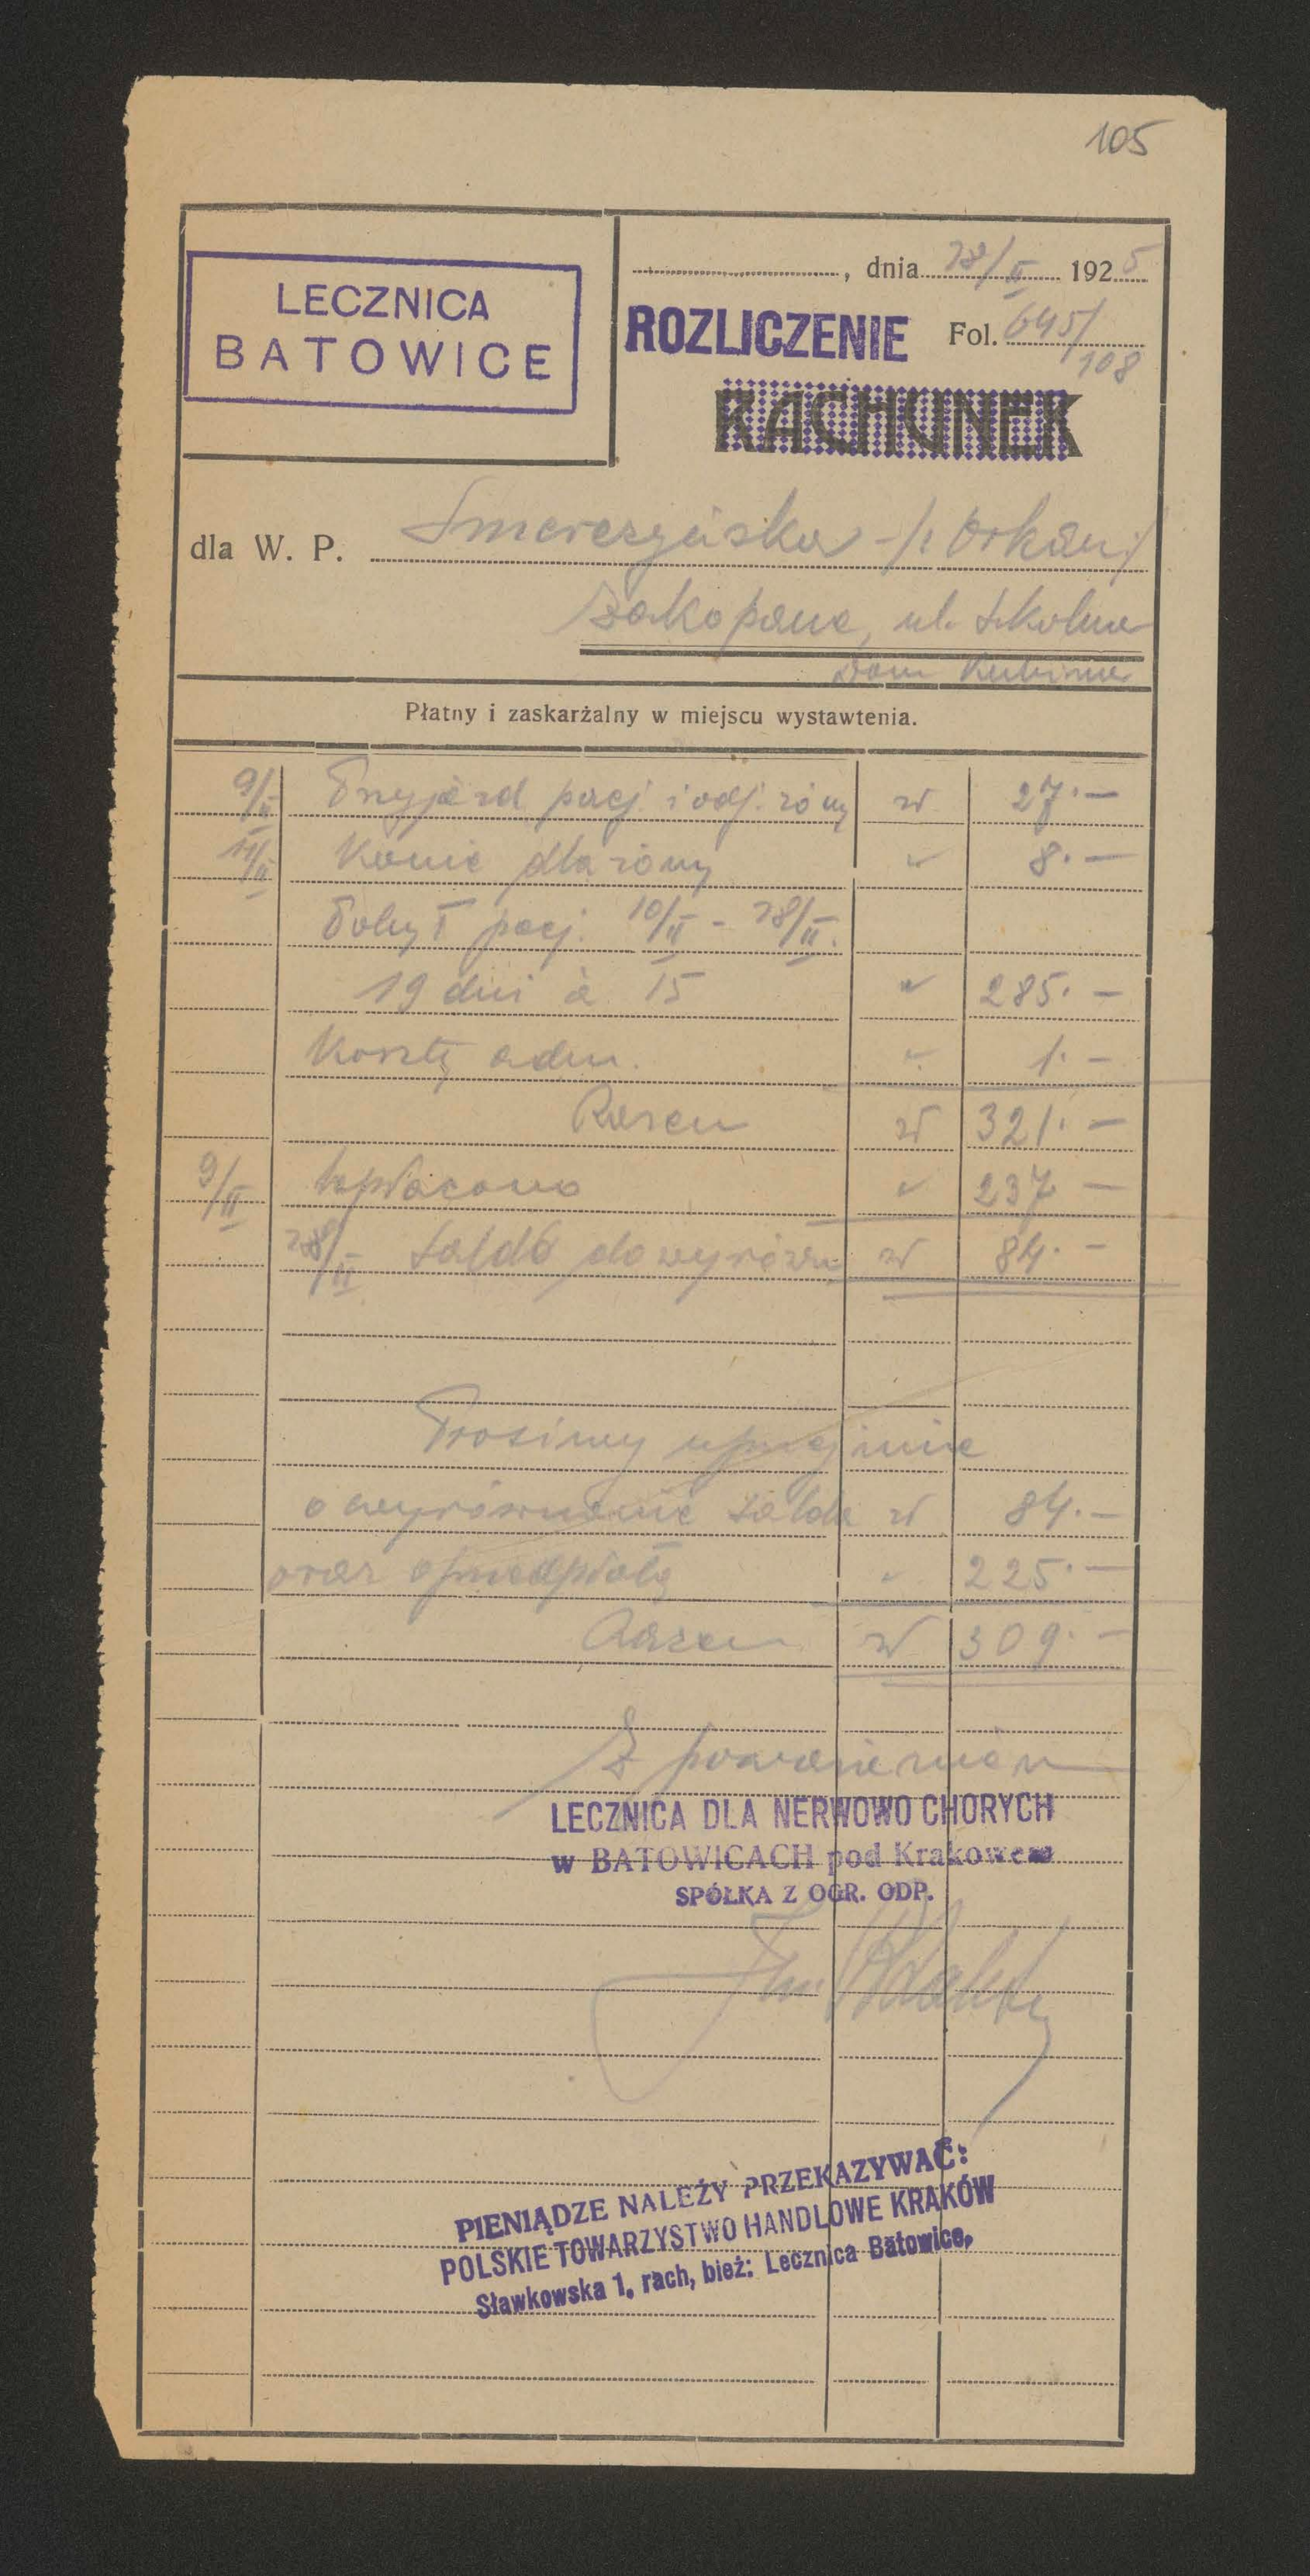 105
LECZNICA
BATOWICE
, dnia 28/II 1925
ROZLICZENIE Fol. 645/
108
RACHUNEK
dla W. P. Smreczyńska -/: Orkan:/
Zakopane, ul. Szkolna
Dom
Płatny i zaskarżalny w miejscu wystawtenia.
9/II Przyjazd pacj. i odj. żony zł 27.—
11/II Konie dla żony " 8.—
Pobyt pacj. 10/II - 28/II.
19 dni à 15 " 285.—
Koszty adm. " 1.—
Razem zł 321.—
9/II wpłacono " 237 —
28/II Saldo do wyrówn. zł 84.—
Prosimy uprzejmie
o wyrównanie salda zł 84.—
oraz o przedpłatę " 225.—
Razem zł 309.—
Z poważaniem
LECZNICA DLA NERWOWO CHORYCH
w BATOWICACH pod Krakowem
SPÓŁKA Z OGR. ODP.
PIENIĄDZE NALEŻY PRZEKAZYWAĆ:
POLSKIE TOWARZYSTWO HANDLOWE KRAKÓW
Sławkowska 1, rach, bież: Lecznica Batowice,